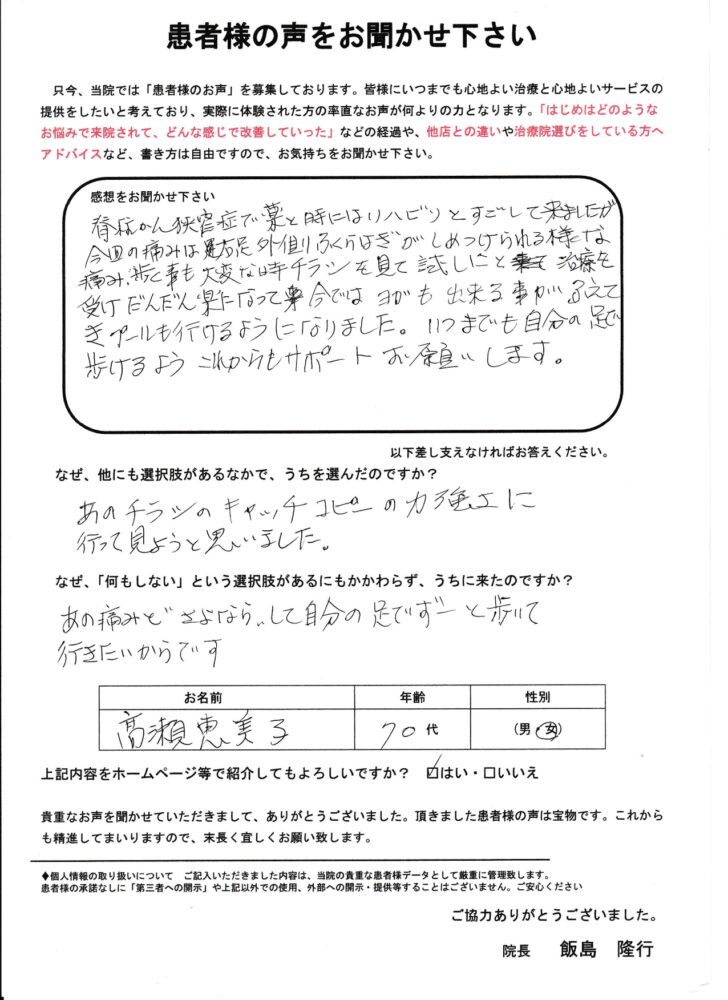 患者様の声をお聞かせ下さい
只今、当院では「患者様のお声」を募集しております。皆様にいつまでも心地よい治療と心地よいサービスの
提供をしたいと考えており、実際に体験された方の率直なお声が何よりの力となります。「はじめはどのような
お悩みで来院されて、どんな感じで改善していった」などの経過や、他店との違いや治療院選びをしている方へ
アドバイスなど、書き方は自由ですので、お気持ちをお聞かせ下さい。
感想をお聞かせ下さい
脊柱かん狭窄症で薬と時にはリハビリとすごして来ましたが
今回の痛みは右足外側りふくらはぎがしめつけられる様な
痛み、歩く事も大変な時チラシを見て試しにと治療を
受けだんだん楽になって今ではヨガも出来る事がふえて
きプールも行けるようになりました。いつまでも自分の足で
歩けるようこれからもサポートお願いします。
以下差し支えなければお答えください。
なぜ、他にも選択肢があるなかで、うちを選んだのですか？
あのチラシのキャッチコピーの力強さに
行って見ようと思いました。
なぜ、「何もしない」という選択肢があるにもかかわらず、うちに来たのですか？
あの痛みとさよならして自分の足でずーと歩いて
行きたいからです
お名前 年齢 性別
高瀬恵美子 70代 (男・女)
上記内容をホームページ等で紹介してもよろしいですか？ ☑はい・□いいえ
貴重なお声を聞かせていただきまして、ありがとうございました。頂きました患者様の声は宝物です。これから
も精進してまいりますので、末長く宜しくお願い致します。
♦個人情報の取り扱いについて ご記入いただきました内容は、当院の貴重な患者様データとして厳重に管理致します。
患者様の承諾なしに「第三者への開示」や上記以外での使用、外部への開示・提供等することはございません。ご安心ください
ご協力ありがとうございました。
院長 飯島 隆行